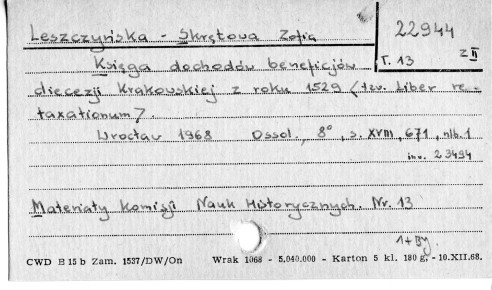 22944
Leszczyńska - Skrętowa Zofia
T. 13 Z II
Księga dochodów beneficjów
diecezji Krakowskiej z roku 1529 (tzw. Liber re-
taxationum).
Wrocław 1968 Ossol., 8°, s. XVIII, 671, nlb. 1
inw. 23494
Materiały Komisji Nauk Historycznych. Nr. 13
CWD E 15 b Zam. 1537/DW/On Wrak 1068 - 5.040.000 - Karton 5 kl. 180 g. - 10.XII.68.